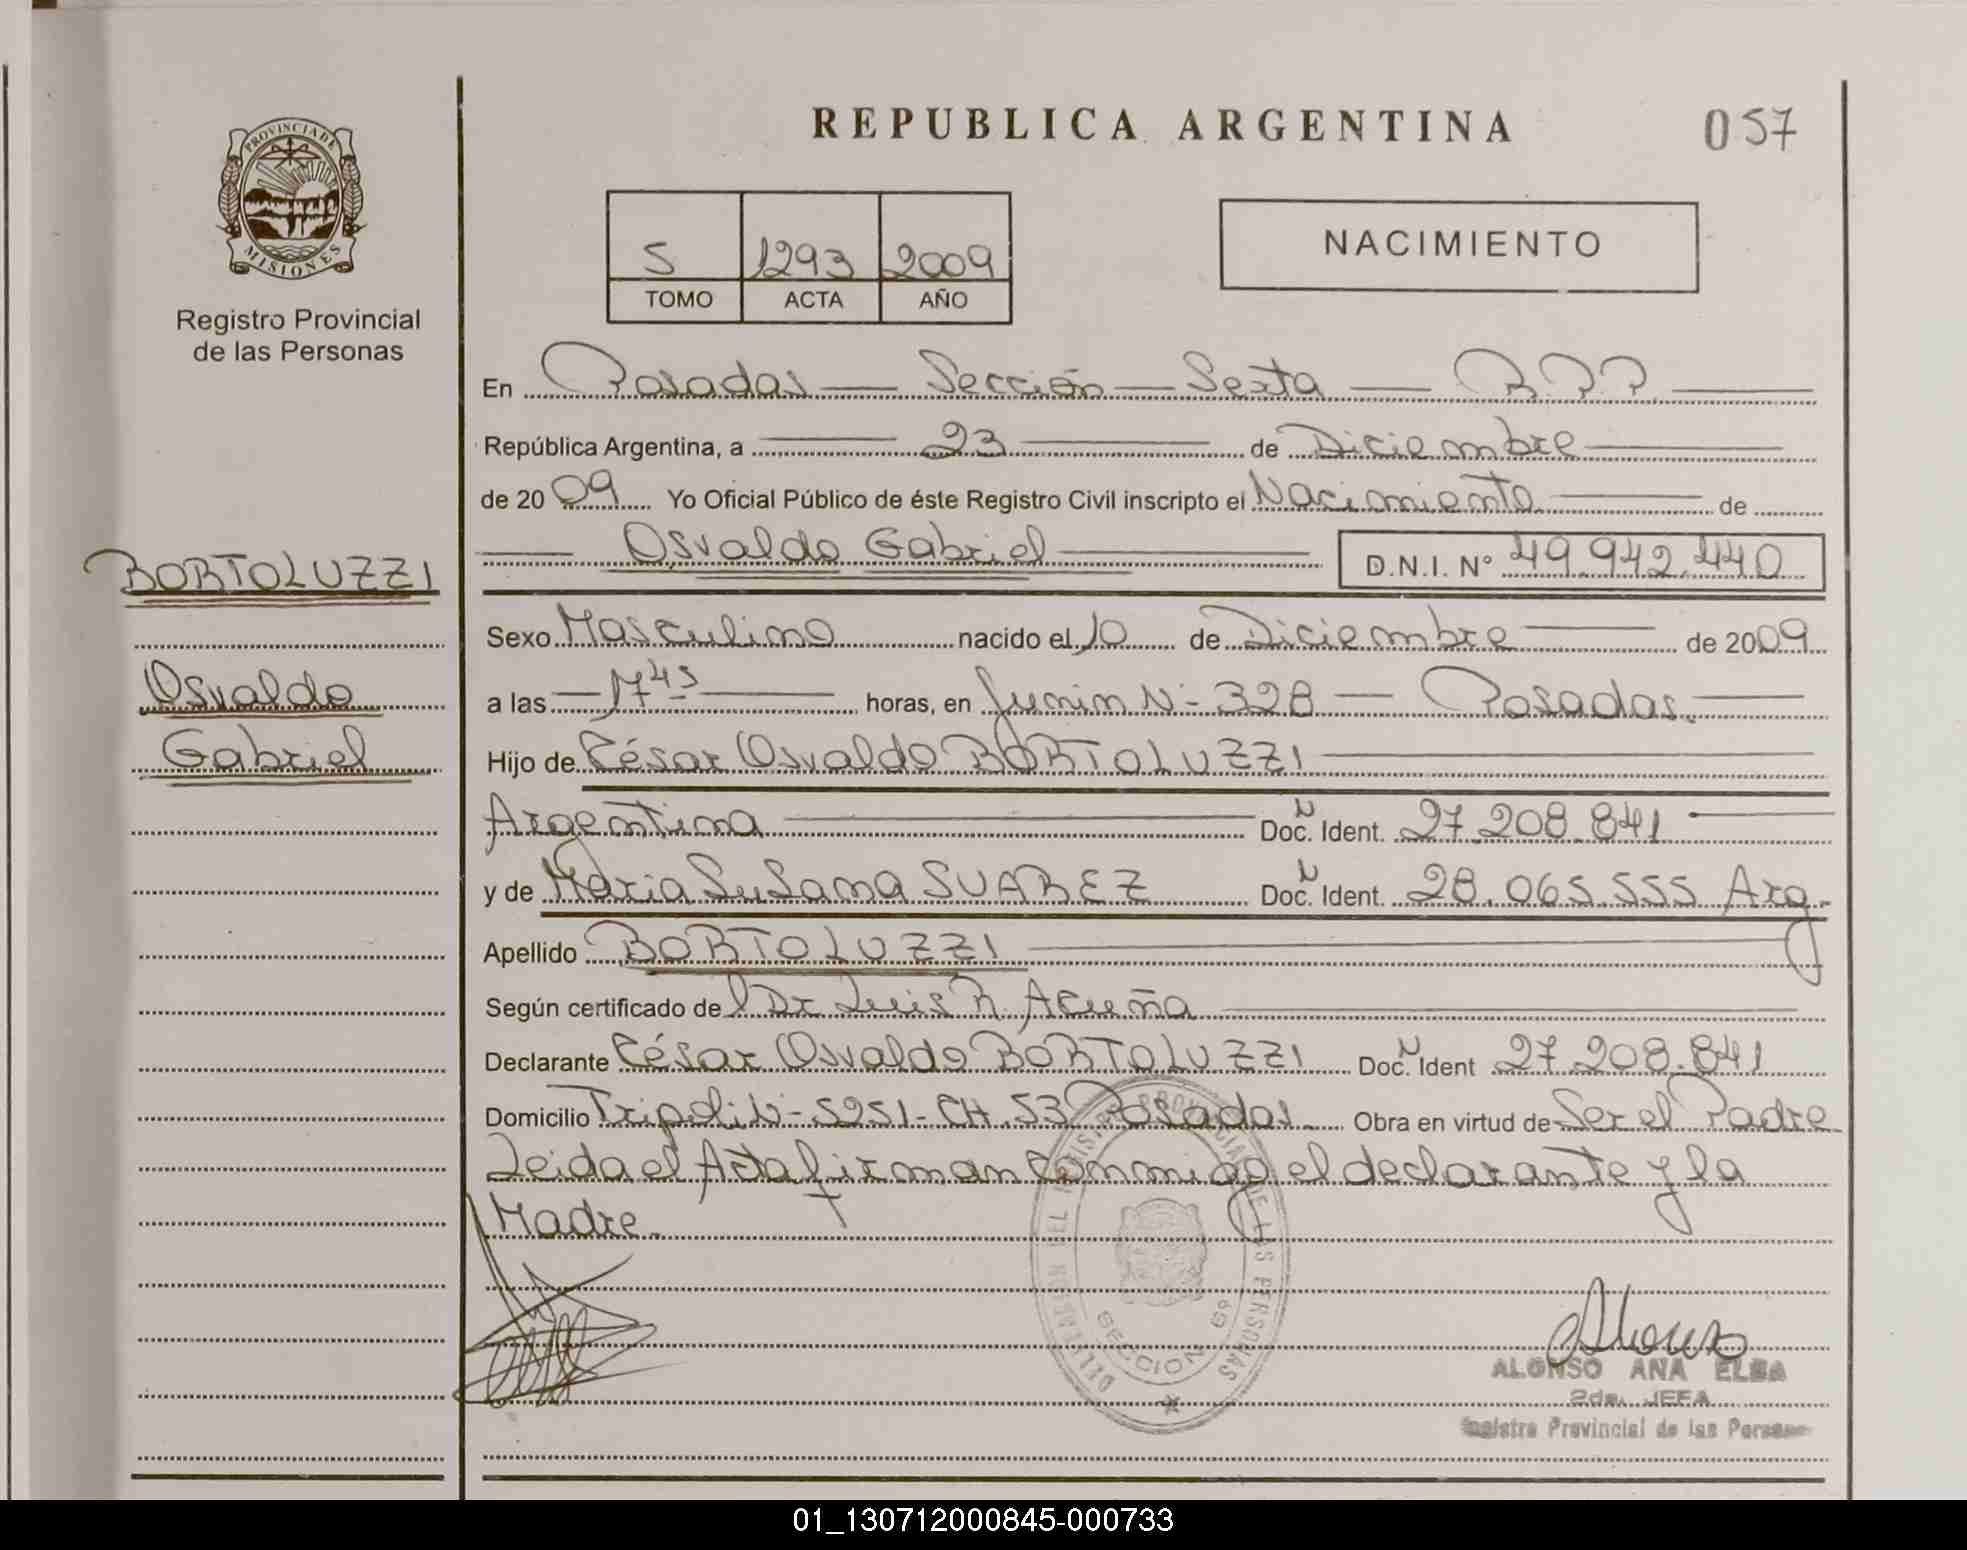 REPUBLICA ARGENTINA
057
PROVINCIA DE
MISIONES
Registro Provincial
de las Personas
5 1293 2009
TOMO ACTA AÑO
NACIMIENTO
En Posadas — Sección — Sexta — R.P.P.
República Argentina, a 23 de Diciembre
de 2009 Yo Oficial Público de éste Registro Civil inscripto el Nacimiento de
Osvaldo Gabriel D.N.I. Nº 49.942.440
BORTOLUZZI
Osvaldo
Gabriel
Sexo Masculino nacido el 10 de Diciembre de 2009
a las 17 43 horas, en Junin Nº 328 — Posadas.
Hijo de César Osvaldo BORTOLUZZI
Argentina Doc. Ident. 27.208.841
y de Maria Susana SUAREZ Doc. Ident. 28.065.555 Arg.
Apellido BORTOLUZZI
Según certificado de Dr Luis R. Acuña
Declarante César Osvaldo BORTOLUZZI Doc. Ident 27.208.841
Domicilio Tripoli Nº 5251-CH.53 Posadas. Obra en virtud de Ser el Padre
Leida el Acta firman conmigo el declarante y la
Madre.
REGISTRO PROVINCIAL DE LAS PERSONAS
SECCION 6º
ALONSO ANA ELBA
2da. JEFA
Registro Provincial de las Personas
01_130712000845-000733